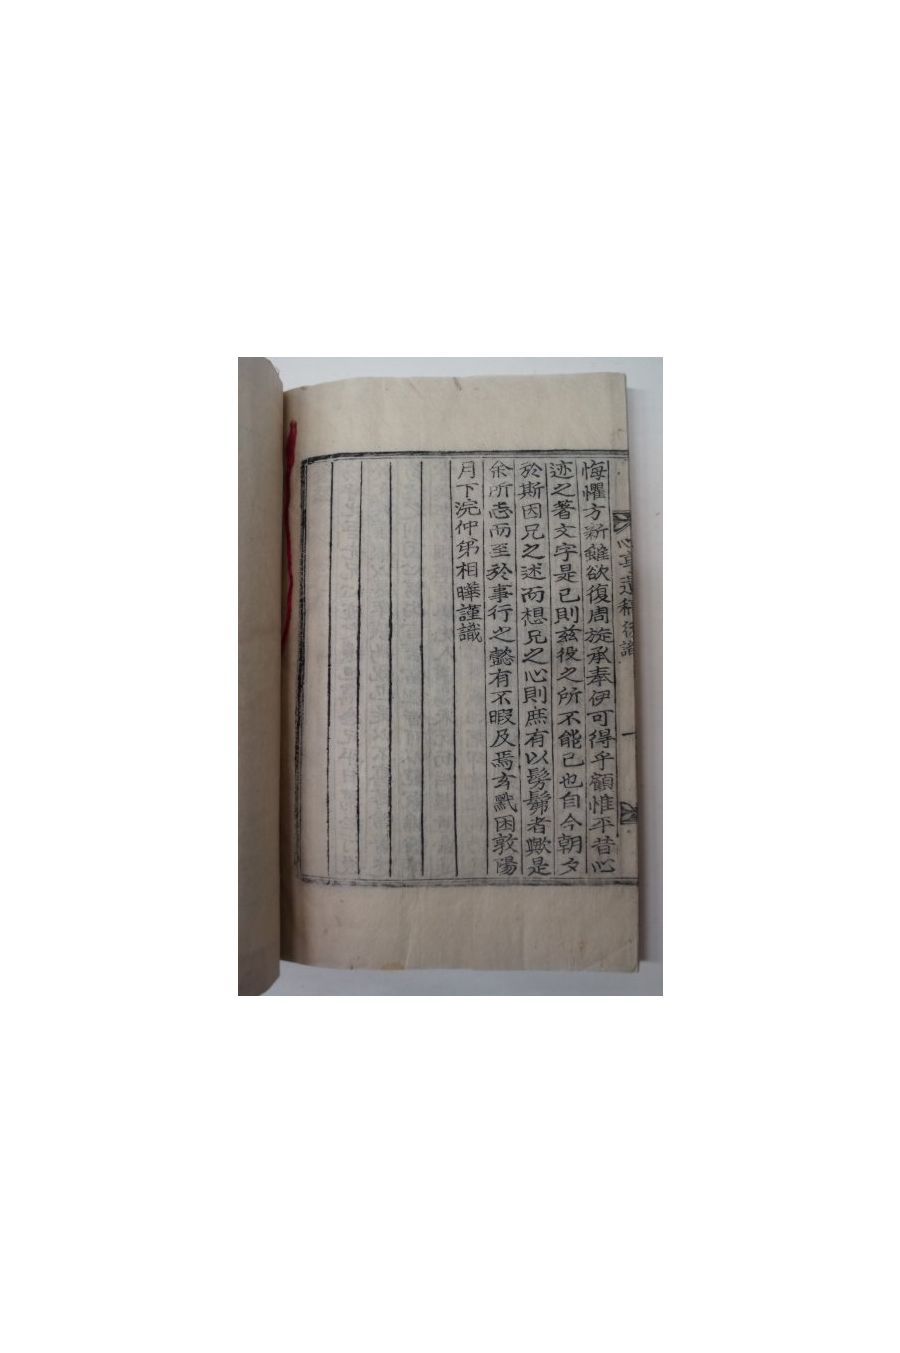 心亭遺稿後識
一
悔懼方新雖欲復周旋承奉伊可得乎顧惟平昔心
迹之著文字是已則玆役之所不能已也自今朝夕
於斯因兄之述而想兄之心則庶有以髣髴者歟是
余所志而至於事行之懿有不暇及焉玄黓困敦陽
月下浣仲弟相曄謹識